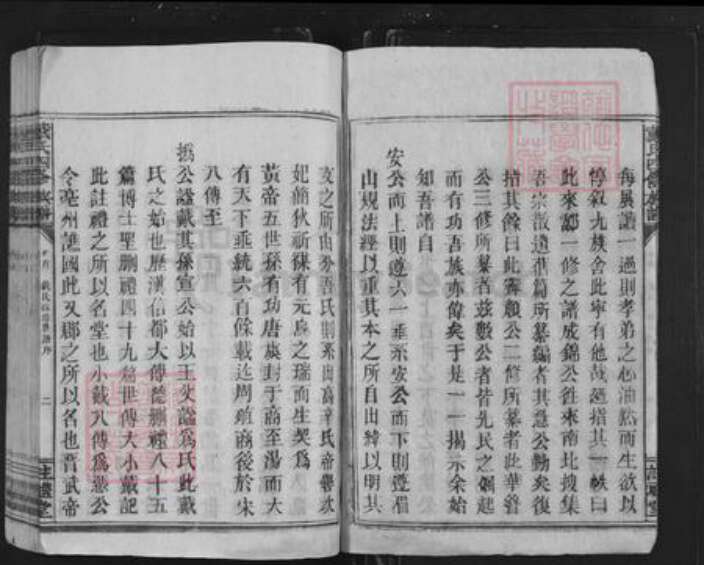 每展讀一過則孝弟之心油然而生欲以
惇敘九族舍此寧有他哉遂指其一帙曰
此來鄒一修之譜成錦公往來南北搜集
吾宗散遺舊簡所纂編者其意公勤矣復
指其餘曰此實顧公二修所纂者此華
公三修所纂者茲數公者皆先民之倡起
而有功吾族亦偉矣于是一一揭示余始
知吾譜自
安公而上則遵六一垂系安公而下則遵眉
山規法經以重其本之所自出緯以明其
支之所由分吾氏則系出高辛氏帝嚳次
妃簡狄祈禖有元鳥之瑞而生契爲
黃帝五世孫有功唐虞封于商至湯而大
有天下垂統六百餘載迄周殖商後於宋
八傳至
撝公諡戴其孫宣公始以王父諡爲氏此戴
氏之始也歷漢信都大傅德刪禮八十五
篇博士聖刪禮四十九篇世傳大小戴記
此註禮之所以名堂也小戴八傳爲憑公
令亳州譙國此又郡之所以名也晉武帝
戴氏四修族譜
戴氏四修族譜
二
註禮堂
註禮堂